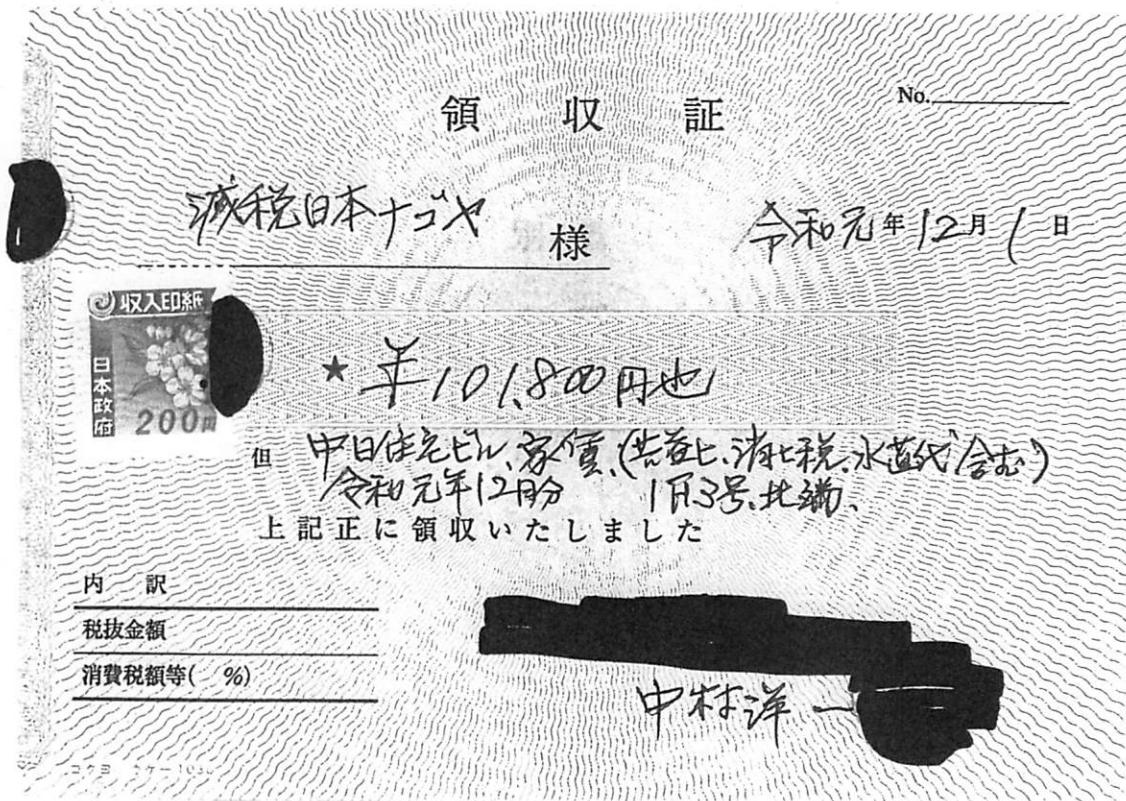 領収証
No.
減税日本ナゴヤ 様
令和元年12月1日
収入印紙
日本政府
200円
★ ¥101,800円也
但 中日住宅ビル、家賃、(共益ヒ、消ヒ税、水道代含む)
令和元年12月分 1F3号、北端、
上記正に領収いたしました
内訳
税抜金額
消費税額等( %)
中村洋一